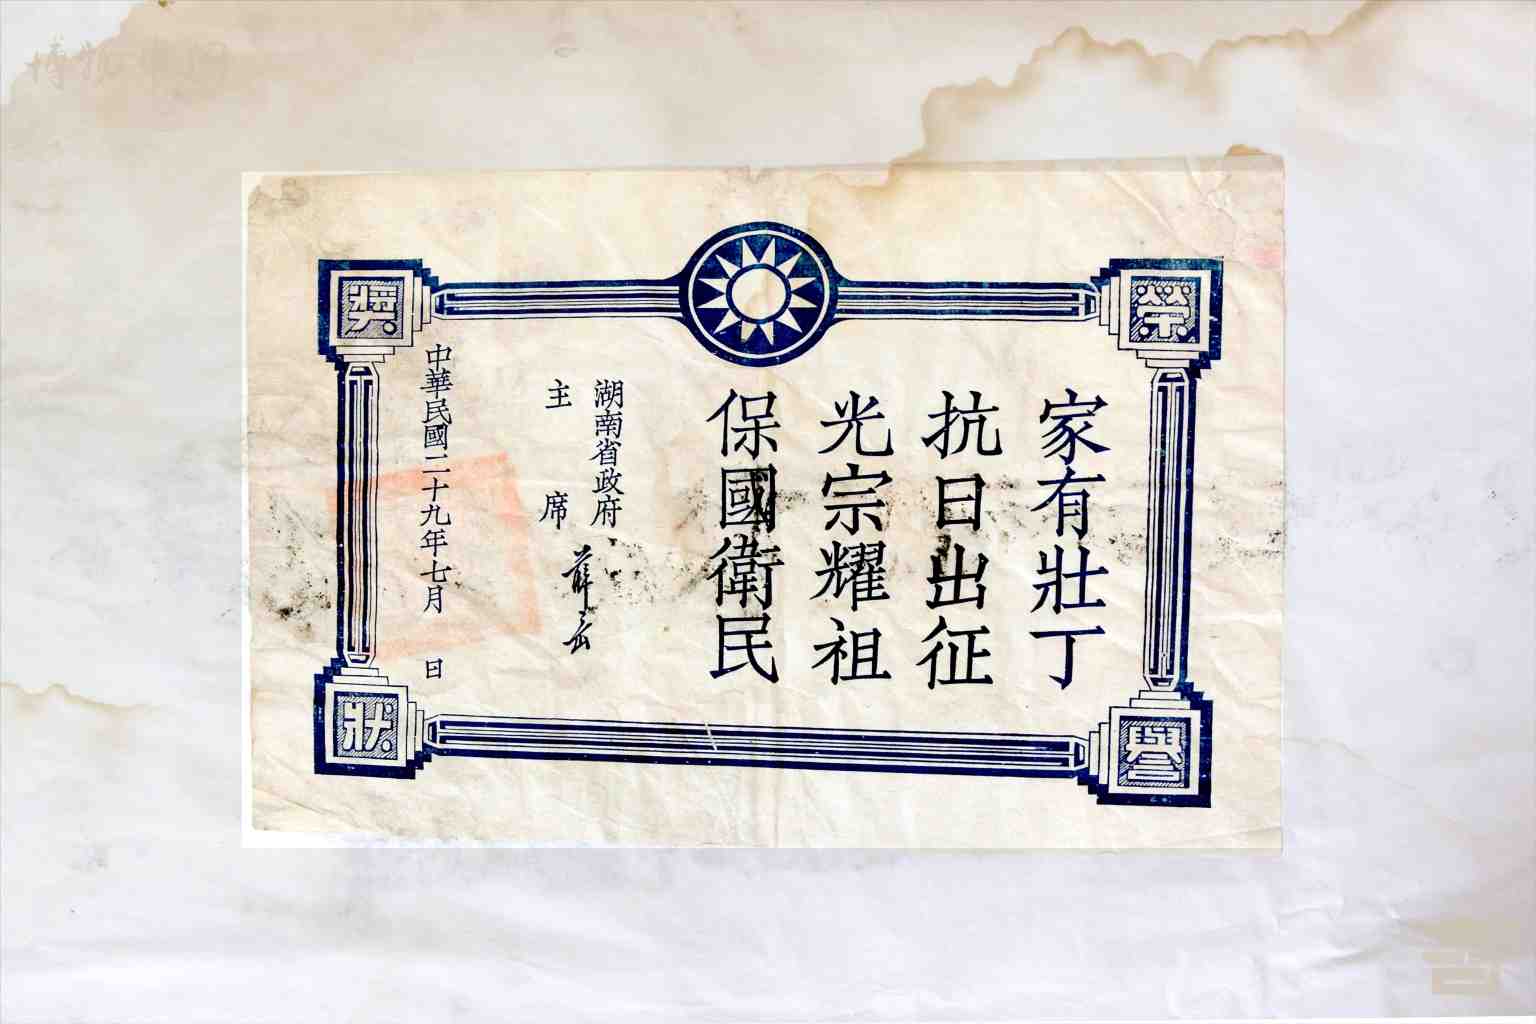 榮譽獎狀
家有壯丁
抗日出征
光宗耀祖
保國衛民
湖南省政府
主席 薛岳
中華民國二十九年七月 日